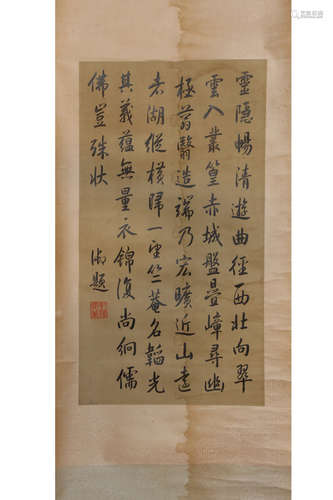 靈隱暢清遊曲徑一西壯向翠
雲入叢篁赤城盤疊嶂尋幽
極蓊翳造端乃宏曠近山遠
者湖縱橫歸一望竺菴名韜光
其義蘊無量衣錦復尚絅儒
佛豈殊狀
御題